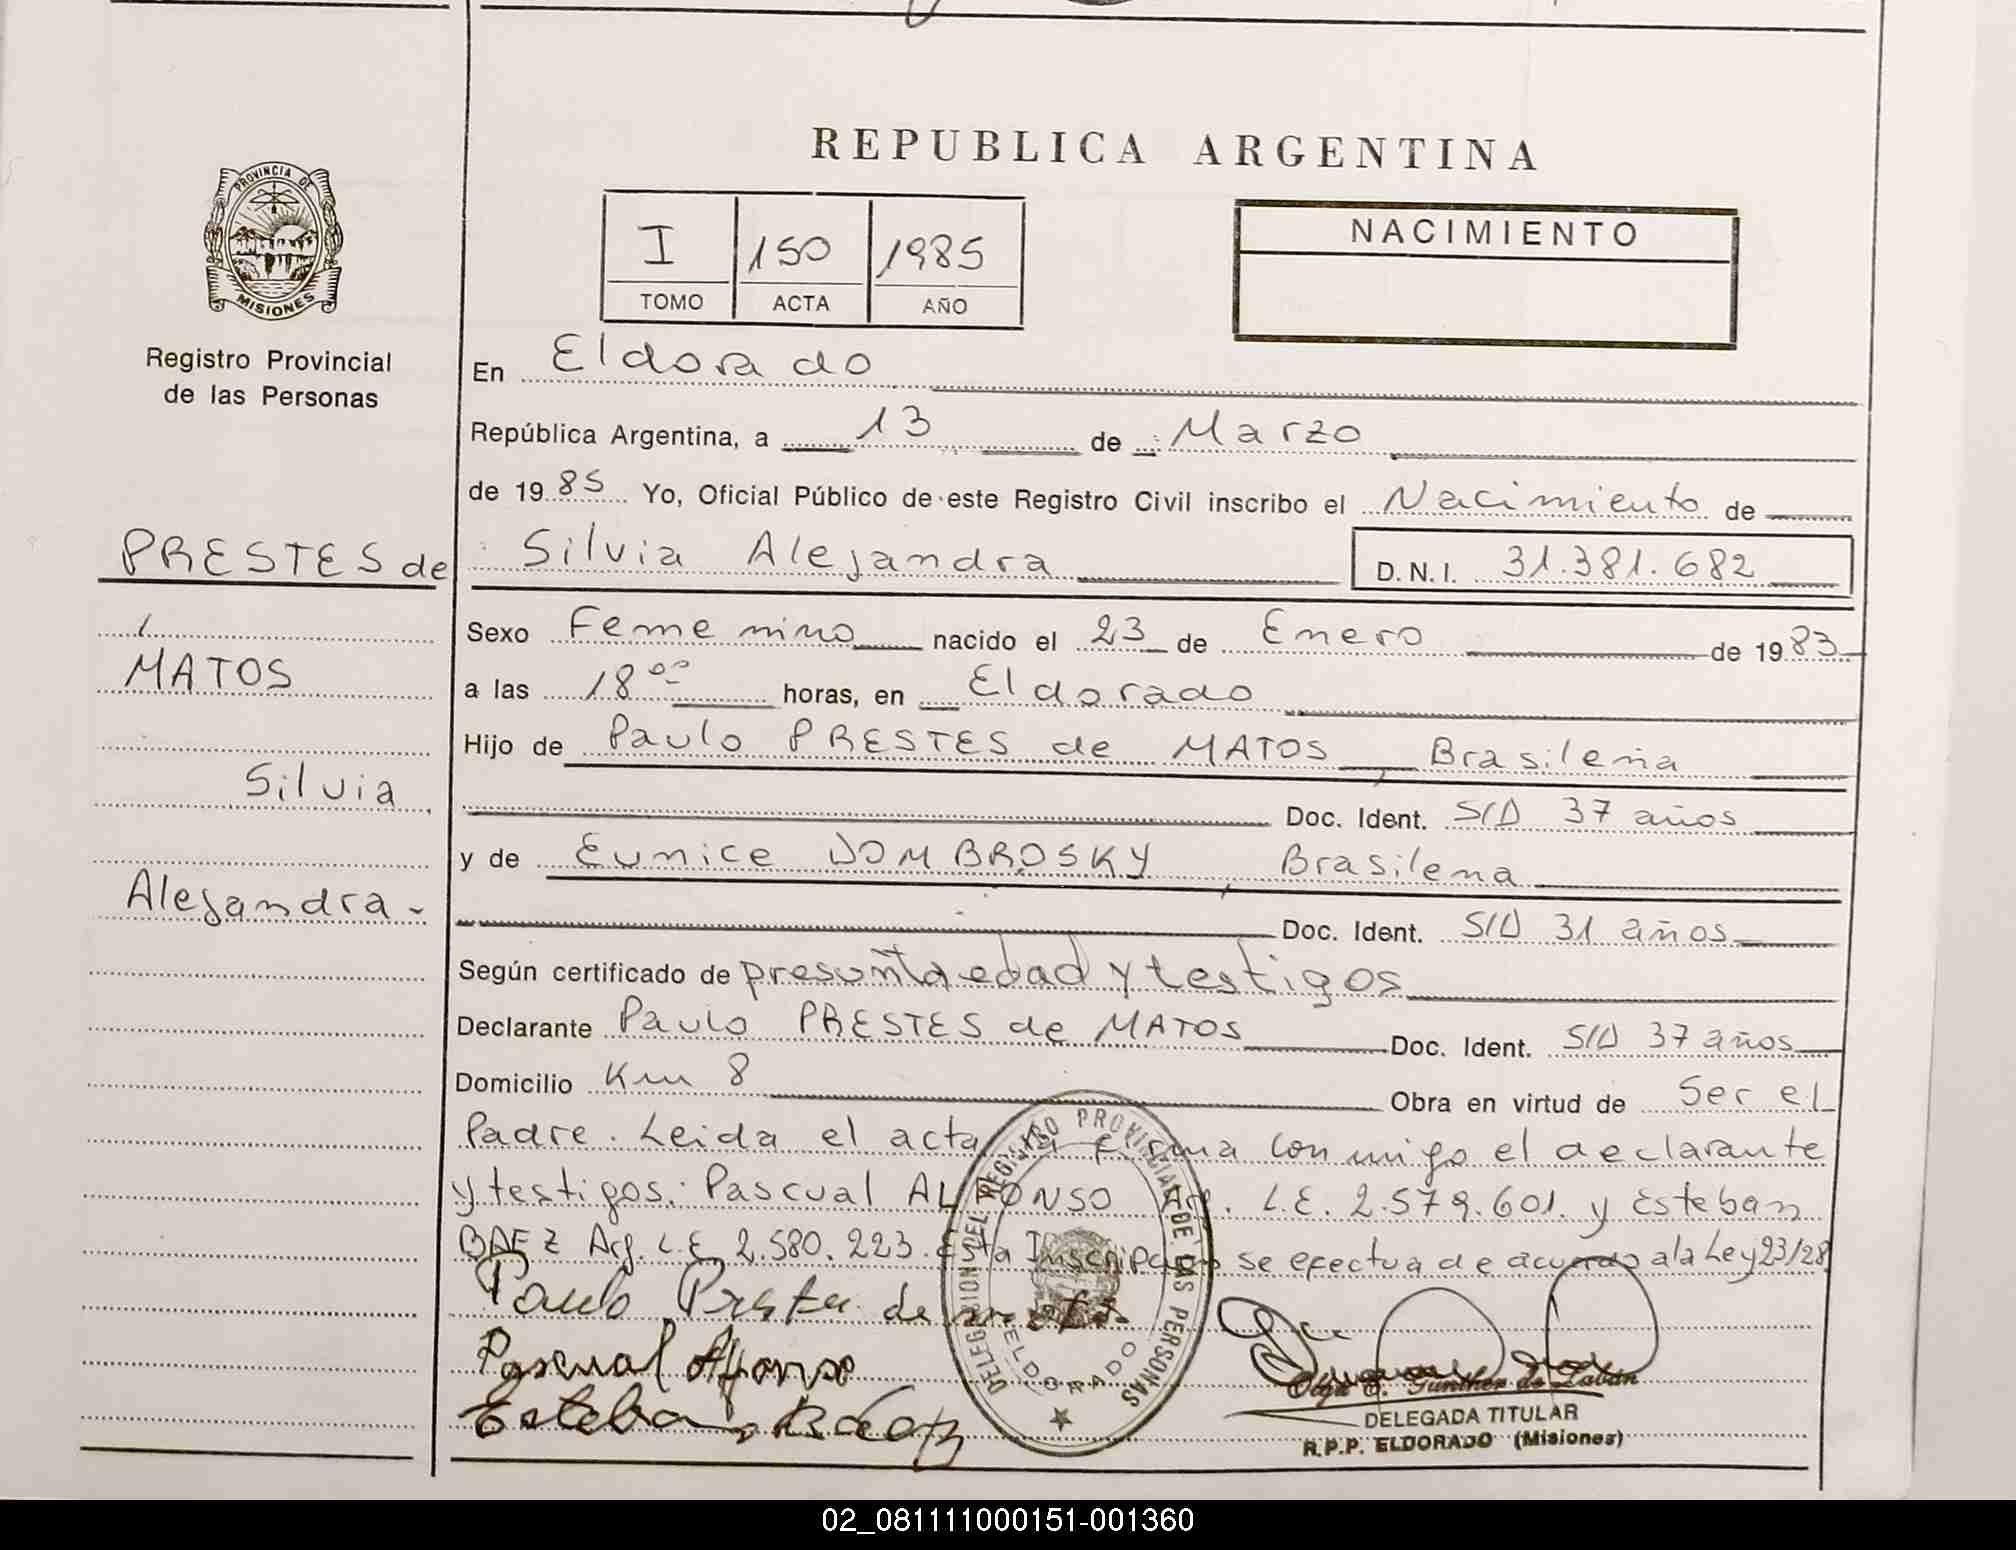 REPUBLICA ARGENTINA
PROVINCIA DE
MISIONES
Registro Provincial
de las Personas
I 150 1985
TOMO ACTA AÑO
NACIMIENTO
En Eldorado
República Argentina, a 13 de Marzo
de 1985 Yo, Oficial Público de este Registro Civil inscribo el Nacimiento de
PRESTES de
MATOS
Silvia
Alejandra
Silvia Alejandra D.N.I. 31.381.682
Sexo Femenino nacido el 23 de Enero de 1983
a las 18 oo horas, en Eldorado
Hijo de Paulo PRESTES de MATOS, Brasileña
Doc. Ident. S/D 37 años
y de Eunice DOMBROSKY, Brasilena
Doc. Ident. S/D 31 años
Según certificado de presunta edad y testigos
Declarante Paulo PRESTES de MATOS Doc. Ident. S/D 37 años
Domicilio Km 8 Obra en virtud de Ser el
Padre. Leida el acta la firma conmigo el declarante
y testigos: Pascual ALFONSO Arg. L.E. 2.579.601. y Esteban
BAEZ Arg. L.E. 2.580.223. Esta Inscripcion se efectua de acuerdo a la Ley 23/28
Paulo Prestes de matos
Pascual Alfonso
Esteban Báez
DELEGACION DEL REGISTRO PROVINCIAL DE LAS PERSONAS
ELDORADO
Olga E. Günther de Zabán
DELEGADA TITULAR
R.P.P. ELDORADO (Misiones)
02_081111000151-001360